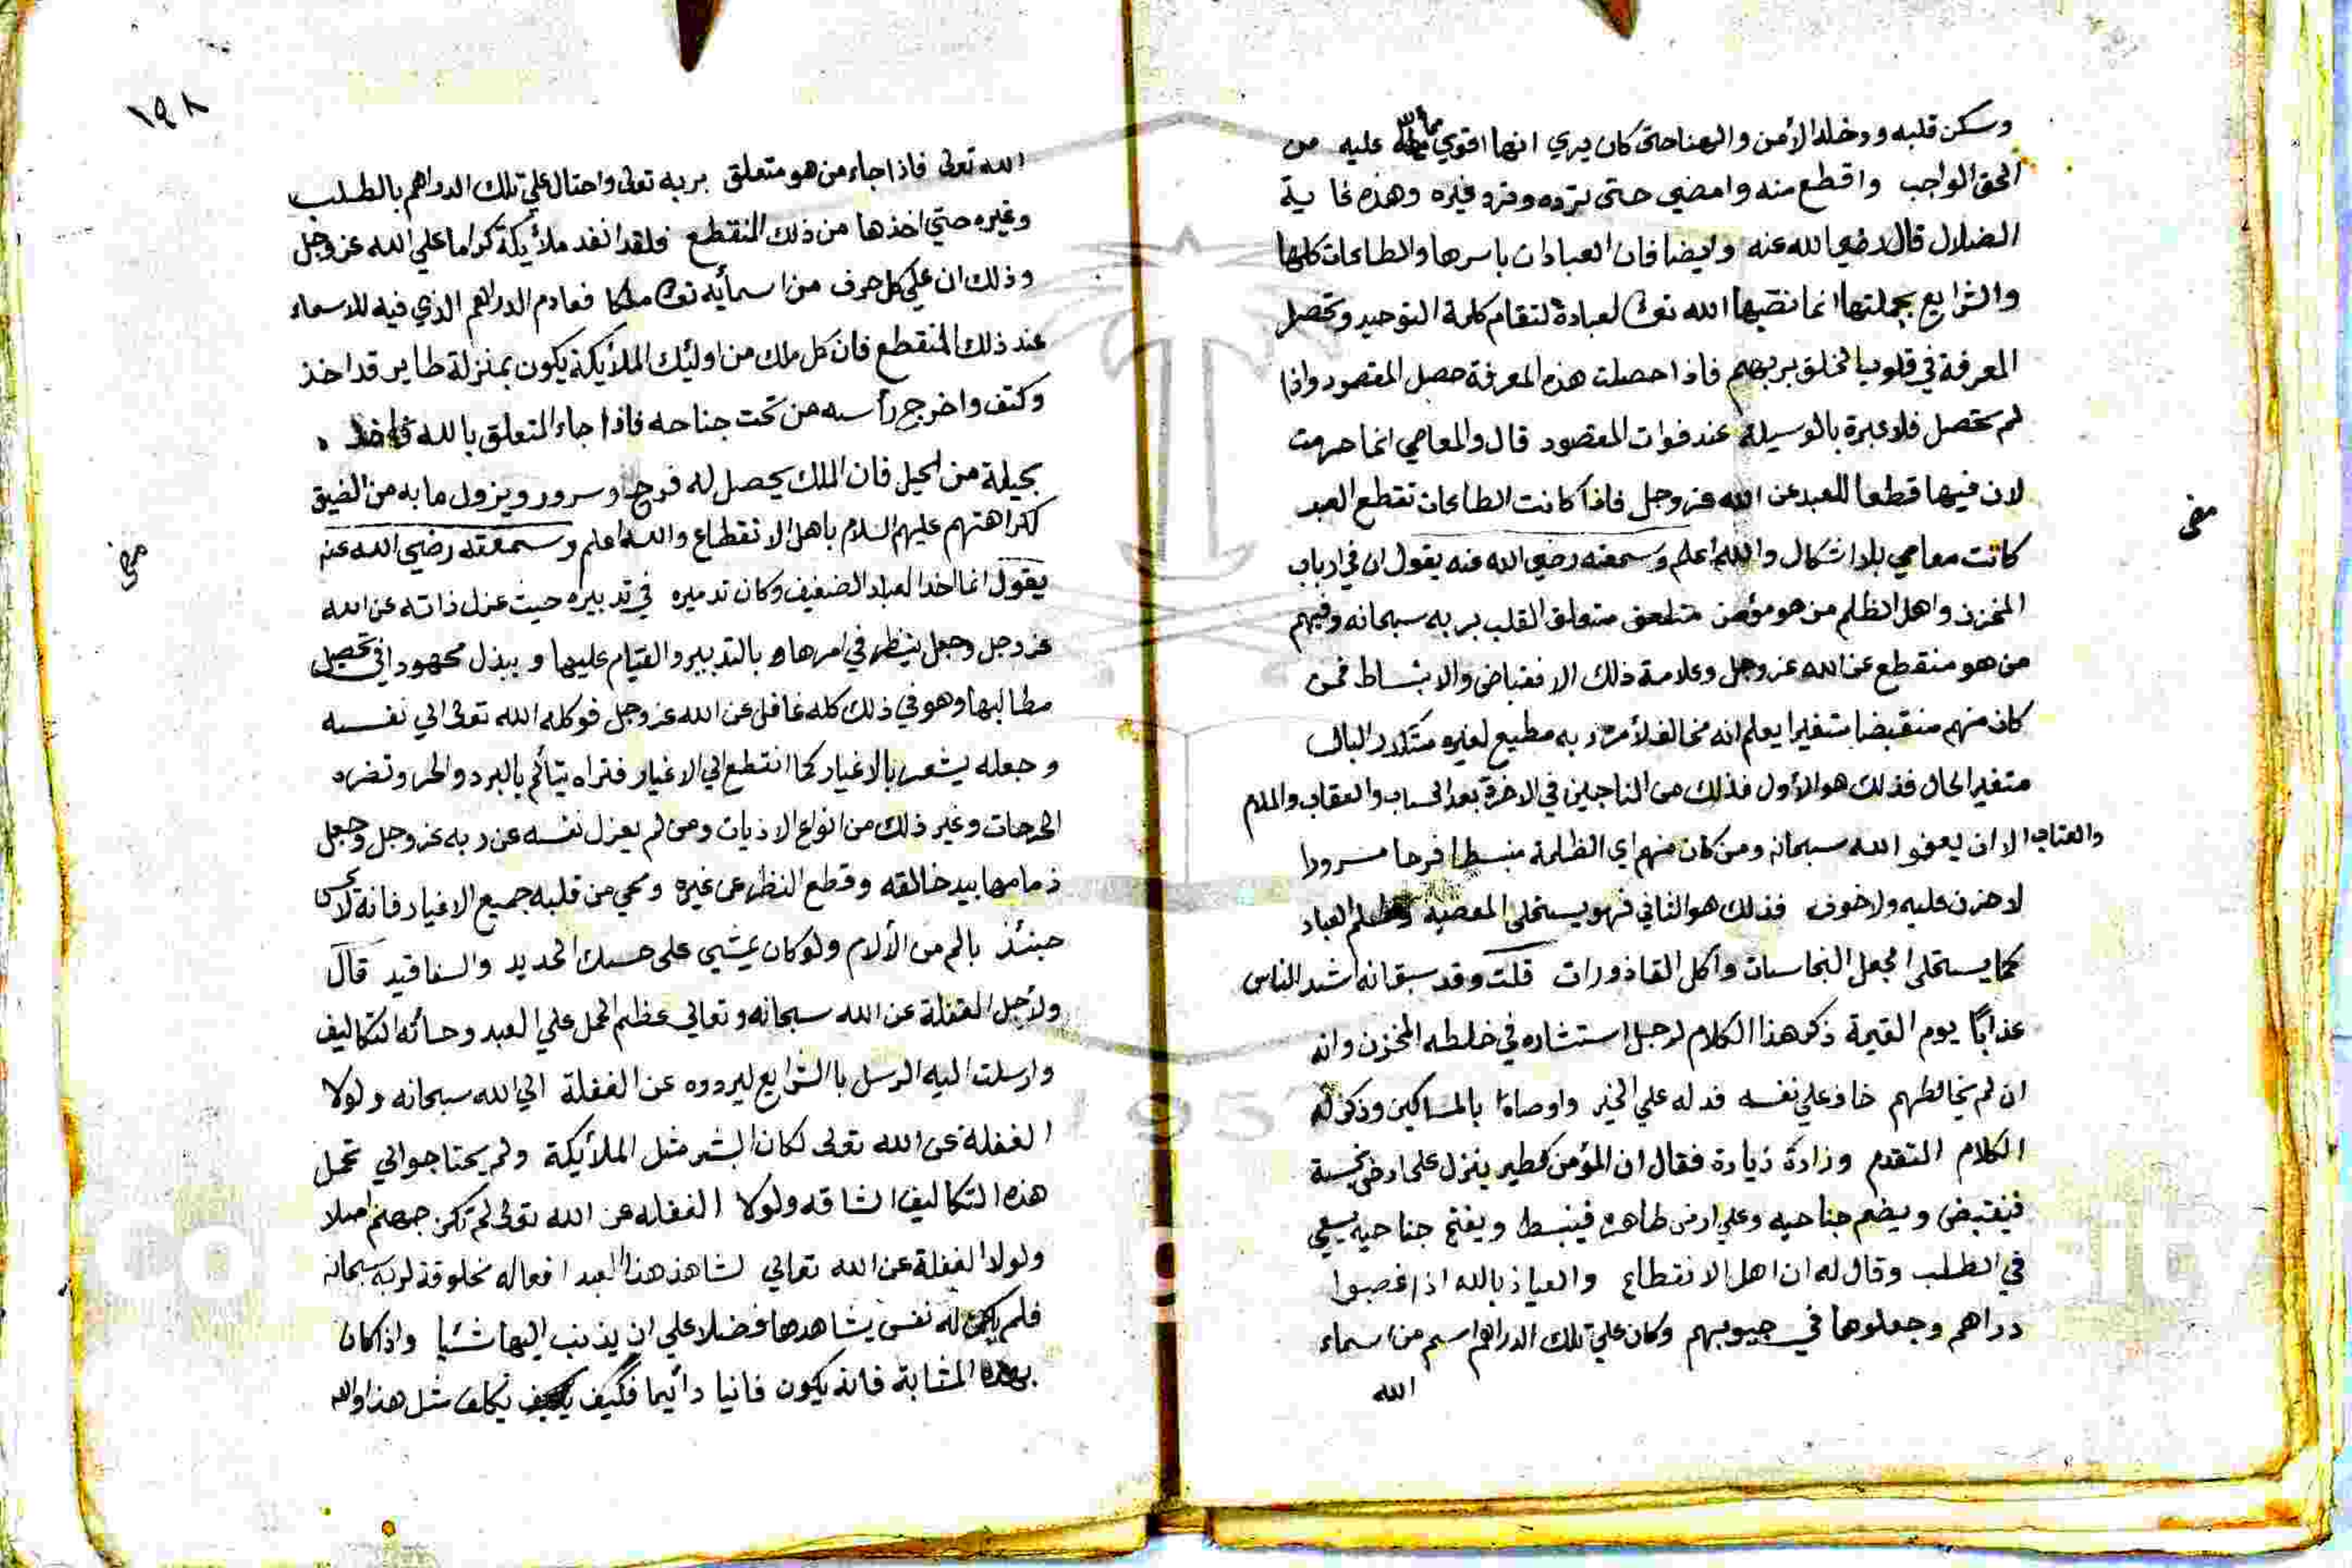 وسكن قلبه ودخله الأمن والهنا حتى كان يري انها اقوي مما لله عليه من
الحق الواجب واقطع منه وامضي حتى ترده وفره وهذه غاية
الضلال قال رضي الله عنه وايضا فان العبادات باسرها والطاعات كلها
والشرايع بجملتها انما نصبها الله تعالى لعباده لتقام كلمة التوحيد وتحصل
المعرفة في قلوب الخلق بربهم فاذا حصلت هذه المعرفة حصل المقصود واذا
لم تحصل فلا عبرة بالوسيلة عند فوات المقصود قال والمعاصي انما حرمت
لان فيها قطعا للعبد عن الله عز وجل فاذا كانت الطاعات تقطع العبد
كانت معاصي بلا اشكال والله اعلم وسمعته رضي الله عنه يقول ان في ارباب
المخزن واهل الظلم من هو مؤمن متعلق القلب بربه سبحانه وفيهم
من هو منقطع عن الله عز وجل وعلامة ذلك الانقباض والانبساط فمن
كان منهم منقبضا متغيرا يعلم انه مخالف لأمر ربه مطيع لغيره متكدر البال
متغير الحال فذلك هو الأول فذلك من الناجين في الاخرة بعد الحساب والعقاب والملام
والعتاب الا ان يعفو الله سبحانه ومن كان منهم اي الظلمة منبسطا فرحا مسرورا
لا حزن عليه ولا خوف فذلك هو الثاني فهو يستحلى المعصية وظلم العباد
كما يستحلى الجعل النجاسات وأكل القاذورات قلت وقد سبق انه اشد الناس
عذابًا يوم القيمة ذكر هذا الكلام لرجل استشاره في خلطه المخزن وانه
ان لم يخالطهم خاف على نفسه فدله علي الخير واوصاه بالمساكين وذكر له
الكلام المتقدم وزاده زيادة فقال ان المؤمن كطير ينزل على ارض نجسة
فينقبض ويضم جناحيه وعلي ارض طاهرة فينبسط ويفتح جناحيه يسعي
في الطلب وقال له ان اهل الانقطاع والعياذ بالله اذا غصبوا
دراهم وجعلوها في جيوبهم وكان على تلك الدراهم اسم من اسماء
الله
مف
١٩٨
الله تعالى فاذا جاء من هو متعلق بربه تعالى واحتال علي تلك الدراهم بالطلب
وغيره حتي اخذها من ذلك المنقطع فلقد انقد ملأيكة كراما علي الله عز وجل
وذلك ان علي كل حرف من اسمأيه تعالى ملكا فمادام الدراهم الذي فيه للاسماء
عند ذلك المنقطع فان كل ملك من اوليك الملأيكة يكون بمنزلة طاير قد اخذ
وكتف واخرج رأسه من تحت جناحه فاذا جاء المتعلق بالله فاخذ
بحيلة من الحيل فان الملك يحصل له فرح وسرور ويزول ما به من الضيق
لكراهتهم عليهم السلام باهل الانقطاع والله اعلم وسمعته رضي الله عنه
يقول انما اخذ العبد الضعيف وكان تدميره في تدبيره حيث عزل ذاته عن الله
عز وجل وجعل ينظر في امرها بالتدبير والقيام عليها ويبذل مجهودا في تحصيل
مطالبها وهو في ذلك كله غافل عن الله عز وجل فوكله الله تعالى الي نفسه
وجعله يشعر بالاغيار كما انقطع الي الاغيار فتراه يتألم بالبرد والحر وتضره
الجرحات وغير ذلك من انواع الاذيات ومن لم يعزل نفسه عن ربه عز وجل وجعل
زمامها بيد خالقه وقطع النظر عن غيره ومحي من قلبه جميع الاغيار فانه لا يحس
حينئذ بالم من الألام ولو كان يمشي على حسك الحديد والسفافيد قال
ولأجل الغفلة عن الله سبحانه وتعالي عظم الحمل علي العبد وجائه التكاليف
وارسلت اليه الرسل بالشرايع ليردوه عن الغفلة الي الله سبحانه ولولا
الغفلة عن الله تعالى لكان البشر مثل الملأيكة ولم يحتاجوا الي تحمل
هذه التكاليف الشاقه ولولا الغفله عن الله تعالى لم تكن جهنم اصلا
ولولا الغفلة عن الله تعالي لشاهد هذا العبد افعاله مخلوقة لربه سبحانه
فلم يكن له نفس يشاهدها فضلا علي ان يذنب اليها شئيا واذا كان
بهذه المثابة فانه يكون فانيا دائيما فكيف يكلف مثل هذا والله